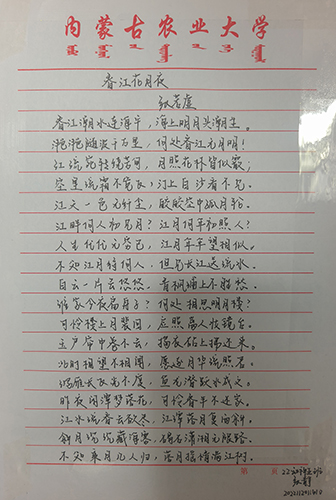 内蒙古农业大学
春江花月夜
张若虚
春江潮水连海平，海上明月共潮生。
滟滟随波千万里，何处春江无月明！
江流宛转绕芳甸，月照花林皆似霰；
空里流霜不觉飞，汀上白沙看不见。
江天一色无纤尘，皎皎空中孤月轮。
江畔何人初见月？江月何年初照人？
人生代代无穷已，江月年年望相似。
不知江月待何人，但见长江送流水。
白云一片去悠悠，青枫浦上不胜愁。
谁家今夜扁舟子？何处相思明月楼？
可怜楼上月裴回，应照离人妆镜台。
玉户帘中卷不去，捣衣砧上拂还来。
此时相望不相闻，愿逐月华流照君。
鸿雁长飞光不度，鱼龙潜跃水成文。
昨夜闲潭梦落花，可怜春半不还家。
江水流春去欲尽，江潭落月复西斜。
斜月沉沉藏海雾，碣石潇湘无限路。
不知乘月几人归，落月摇情满江树。
第 页